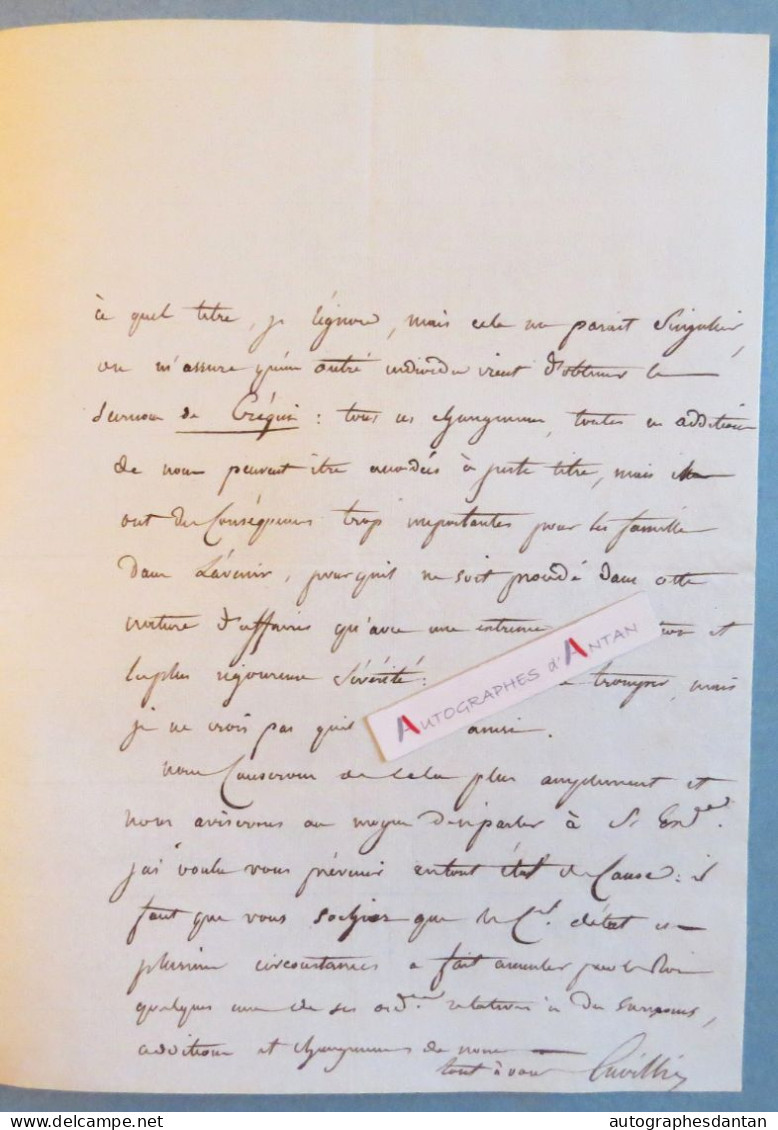 à quel titre, je l'ignore, mais cela me parait singulier,
on m'assure qu'un autre individu vient d'obtenir le
surnom de Créqui : tous ces changemens, toutes ces additions
de nom peuvent être accordés à juste titre, mais
ont des conséquences trop importantes pour les familles
dans l'avenir, pour qu'il ne soit procédé dans cette
nature d'affaires qu'avec une extrême et
la plus rigoureuse sévérité : tromper, mais
je ne crois pas qu'il ainsi.
nous causerons de cela plus amplement et
nous aviserons au moyen d'en parler à S. Ex.
j'ai voulu vous prévenir en tout état de cause : il
faut que vous sachiez que le C.el d'état en
plusieurs circonstances a fait annuler par le Roi
quelques unes de ses ord.ces relatives à des surnoms,
additions et changemens de nom
tout à vous Cuvillier
AUTOGRAPHES d'ANTAN
autographesdantan
© autographesdantan / delcampe.net